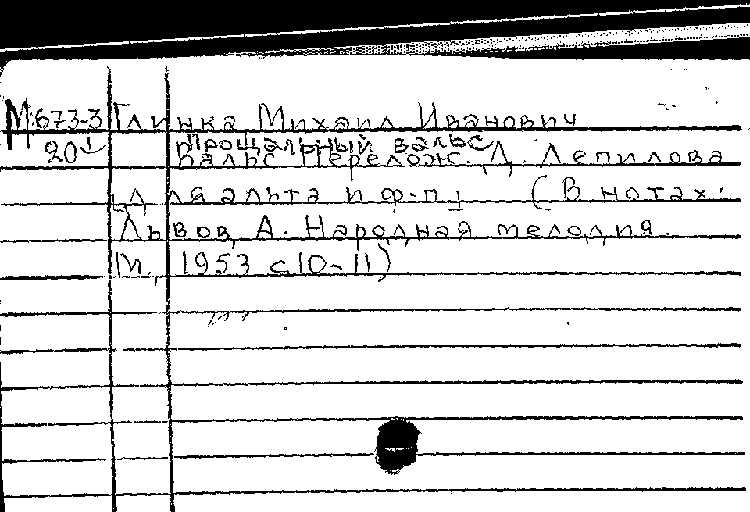 М:673-3 Глинка, Михаил Иванович
20 Прощальный вальс
Вальс Перелож. Д. Лепилова
[Для альта и ф-п] (В нотах:
Львов, А. Народная мелодия.
М., 1953 с10-11)